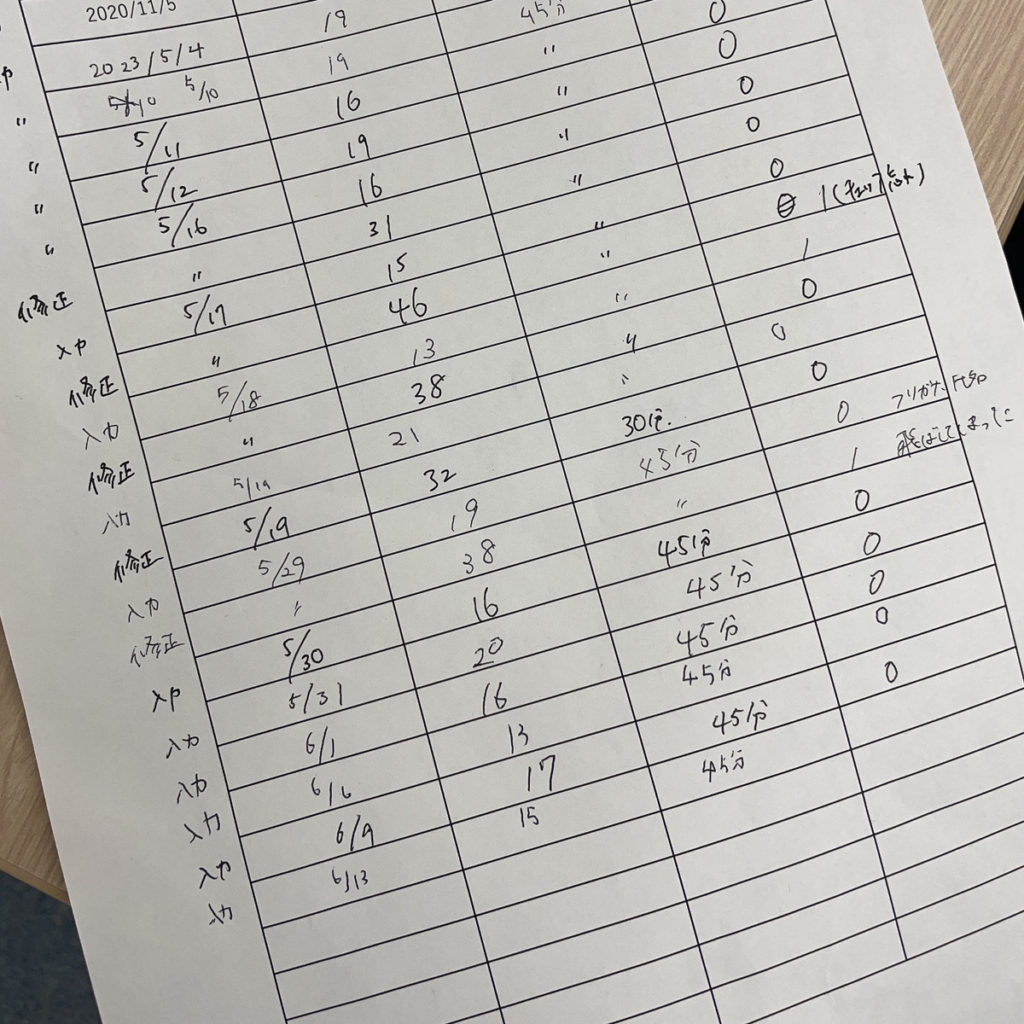 2020/11/5
入力 2023/5/4 19
〃 5/10 19 45分
〃 5/11 16 〃 0
〃 5/12 19 〃 0
〃 5/16 16 〃 0
修正 〃 31 〃 0
入力 5/17 15 〃 0
修正 〃 46 〃 1
入力 5/18 13 〃 1
修正 〃 38 〃 0
入力 5/19 21 〃 0
修正 5/19 32 30分 0
入力 5/29 19 45分 0
修正 〃 38 〃 1 フリガナ、氏名
飛ばしてしまった
入力 5/30 16 45分 0
入力 5/31 20 45分 0
入力 6/1 16 45分 0
入力 6/6 13 45分 0
入力 6/9 17 45分 0
入力 6/13 15 45分